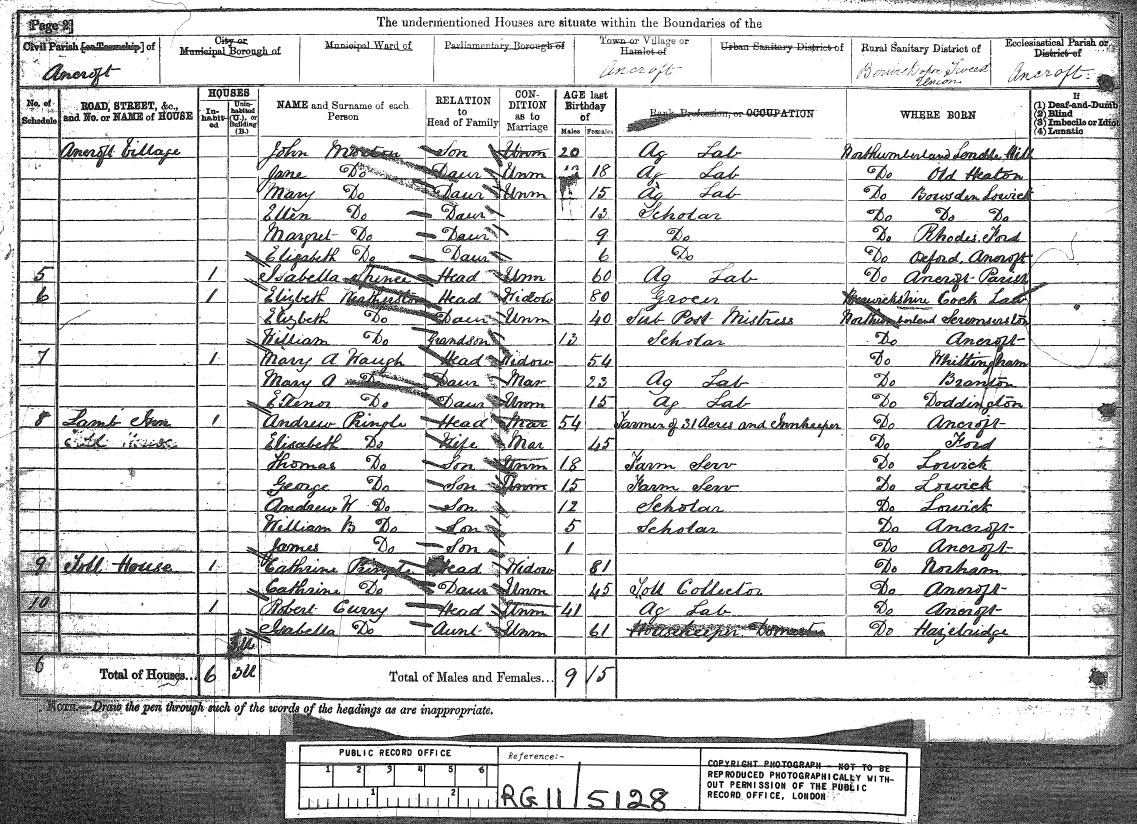 Page 2]
The undermentioned Houses are situate within the Boundaries of the
Civil Parish [or Township] of
Ancroft
City or Municipal Borough of
Municipal Ward of
Parliamentary Borough of
Town or Village or Hamlet of
Ancroft
Urban Sanitary District of
Rural Sanitary District of
Berwick upon Tweed Union
Ecclesiastical Parish or District of
Ancroft
No. of Schedule
ROAD, STREET, &c., and No. or NAME of HOUSE
HOUSES
In-habit-ed
Unin-habited (U.), or Building (B.)
NAME and Surname of each Person
RELATION to Head of Family
CON-DITION as to Marriage
AGE last Birthday of
Males Females
Rank, Profession, or OCCUPATION
WHERE BORN
If
(1) Deaf-and-Dumb
(2) Blind
(3) Imbecile or Idiot
(4) Lunatic
Ancroft Village John Morton Son Unm 20 Ag Lab Northumberland Hill
Jane Do Daur Unm 18 Ag Lab Do Old Heaton
Mary Do Daur Unm 15 Ag Lab Do Bowsden Lowick
Ellen Do Daur 13 Scholar Do Do Do
Margret Do Daur 9 Do Do Rhodes, Ford
Elizabeth Do Daur 6 Do Do Oxford, Ancroft
5 1 Isabella Spence Head Unm 60 Ag Lab Do Ancroft Parish
6 1 Elizbeth Head Widow 80 Grocer Berwickshire Cock Law
Elizbeth Do Daur Unm 40 Sub Post Mistress Northumberland Scremerston
William Do Grandson 13 Scholar Do Ancroft
7 1 Mary A Waugh Head Widow 54 Do Whittingham
Mary A Do Daur Mar 23 Ag Lab Do Branton
Elenor Do Daur Unm 15 Ag Lab Do Doddington
8 Lamb Inn 1 Andrew Pringle Head Mar 54 Farmer of 31 Acres and Innkeeper Do Ancroft
Elisabeth Do Wife Mar 45 Do Ford
Thomas Do Son Unm 18 Farm Serv Do Lowick
George Do Son Unm 15 Farm Serv Do Lowick
Andrew W Do Son 12 Scholar Do Lowick
William B Do Son 5 Scholar Do Ancroft
James Do Son 1 Do Ancroft
9 Toll House 1 Cathrine Pringle Head Widow 81 Do Norham
Cathrine Do Daur Unm 45 Toll Collector Do Ancroft
10 1 Robert Curry Head Unm 41 Ag Lab Do Ancroft
Isabella Do Aunt Unm 61 Housekeeper Domestic Do Hazelridge
3U
6 Total of Houses... 6 3U Total of Males and Females... 9 15
NOTE.—Draw the pen through such of the words of the headings as are inappropriate.
PUBLIC RECORD OFFICE
1 2 3 4 5 6
1 2
Reference:-
RG11/5128
COPYRIGHT PHOTOGRAPH - NOT TO BE
REPRODUCED PHOTOGRAPHICALLY WITH-
OUT PERMISSION OF THE PUBLIC
RECORD OFFICE, LONDON